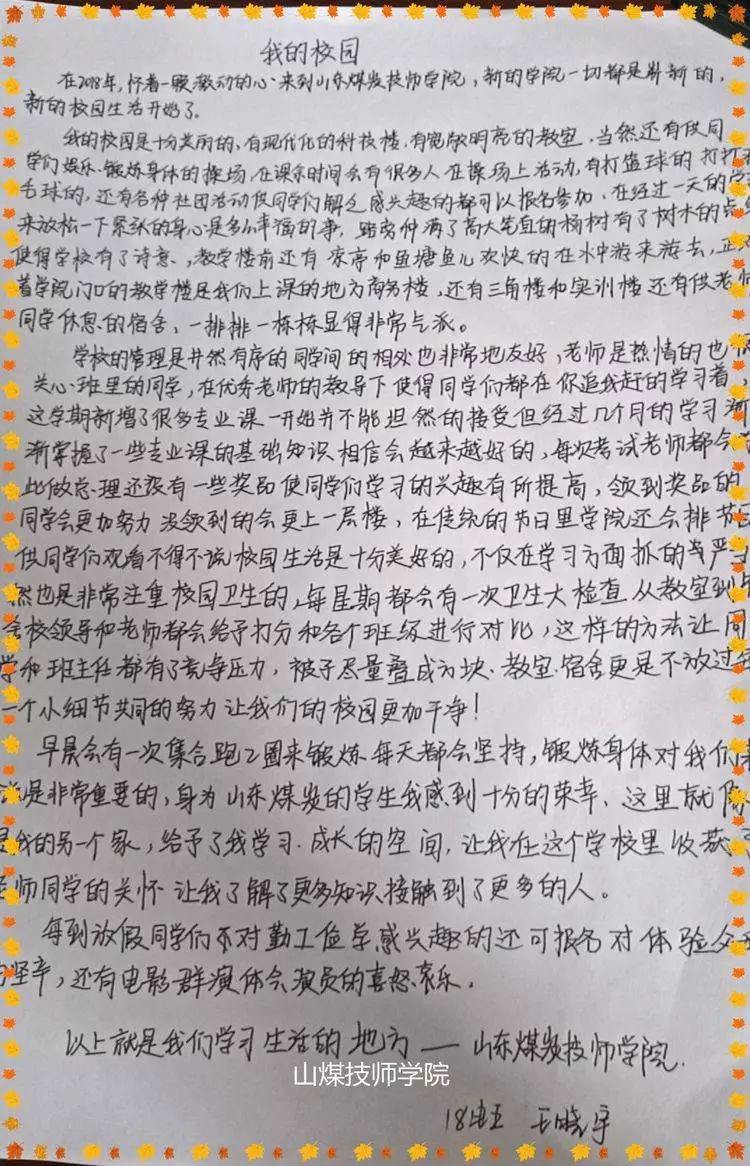 我的校园
在2018年，怀着一颗激动的心来到山东煤炭技师学院，新的学院一切都是崭新的，
新的校园生活开始了。
我的校园是十分美丽的，有现代化的科技楼，有宽敞明亮的教室，当然还有供同
学们娱乐、锻炼身体的操场，在课余时间会有很多人在操场上活动，有打篮球的 打打
毛球的，还有各种社团活动供同学们解乏感兴趣的都可以报名参加，在经过一天的学
来放松一下紧张的身心是多么幸福的事，路旁种满了高大笔直的杨树有了树木的点
使得学校有了诗意，教学楼前还有凉亭和鱼塘鱼儿欢快的在水中游来游去，正
着学院门口的教学楼是我们上课的地方商务楼，还有三角楼和实训楼还有供老师
同学休息的宿舍，一排排一栋栋显得非常气派。
学校的管理是井然有序的同学间的相处也非常地友好，老师是热情的也很
关心班里的同学，在优秀老师的教导下使得同学们都在你追我赶的学习着
这学期新增了很多专业课一开始并不能坦然的接受但经过几个月的学习渐
渐掌握了一些专业课的基础知识相信会越来越好的，每次考试老师都会
比做总理还设有一些奖品使同学们学习的兴趣有所提高，领到奖品的
同学会更加努力没领到的会更上一层楼，在传统的节日里学院还会排节目
供同学们观看不得不说校园生活是十分美好的，不仅在学习方面抓的与严
然也是非常注重校园卫生的，每星期都会有一次卫生大检查从教室到
舍校领导和老师都会给予打分和各个班级进行对比，这样的方法让同
学和班主任都有了竞争压力，被子尽量叠成方块、教室、宿舍更是不放过
一个小细节共同的努力让我们的校园更加干净！
早晨会有一次集合跑2圈来锻炼每天都会坚持，锻炼身体对我们来
说是非常重要的，身为山东煤炭的学生我感到十分的荣幸、这里就像
是我的另一个家，给予了我学习、成长的空间，让我在这个学校里收获了
老师同学的关怀让我了解了更多知识、接触到了更多的人。
每到放假同学们不对勤工俭学感兴趣的还可报名对体验父母
的坚辛，还有电影群演体会演员的喜怒哀乐。
以上就是我们学习生活的地方——山东煤炭技师学院.
山煤技师学院
18 王晓宇